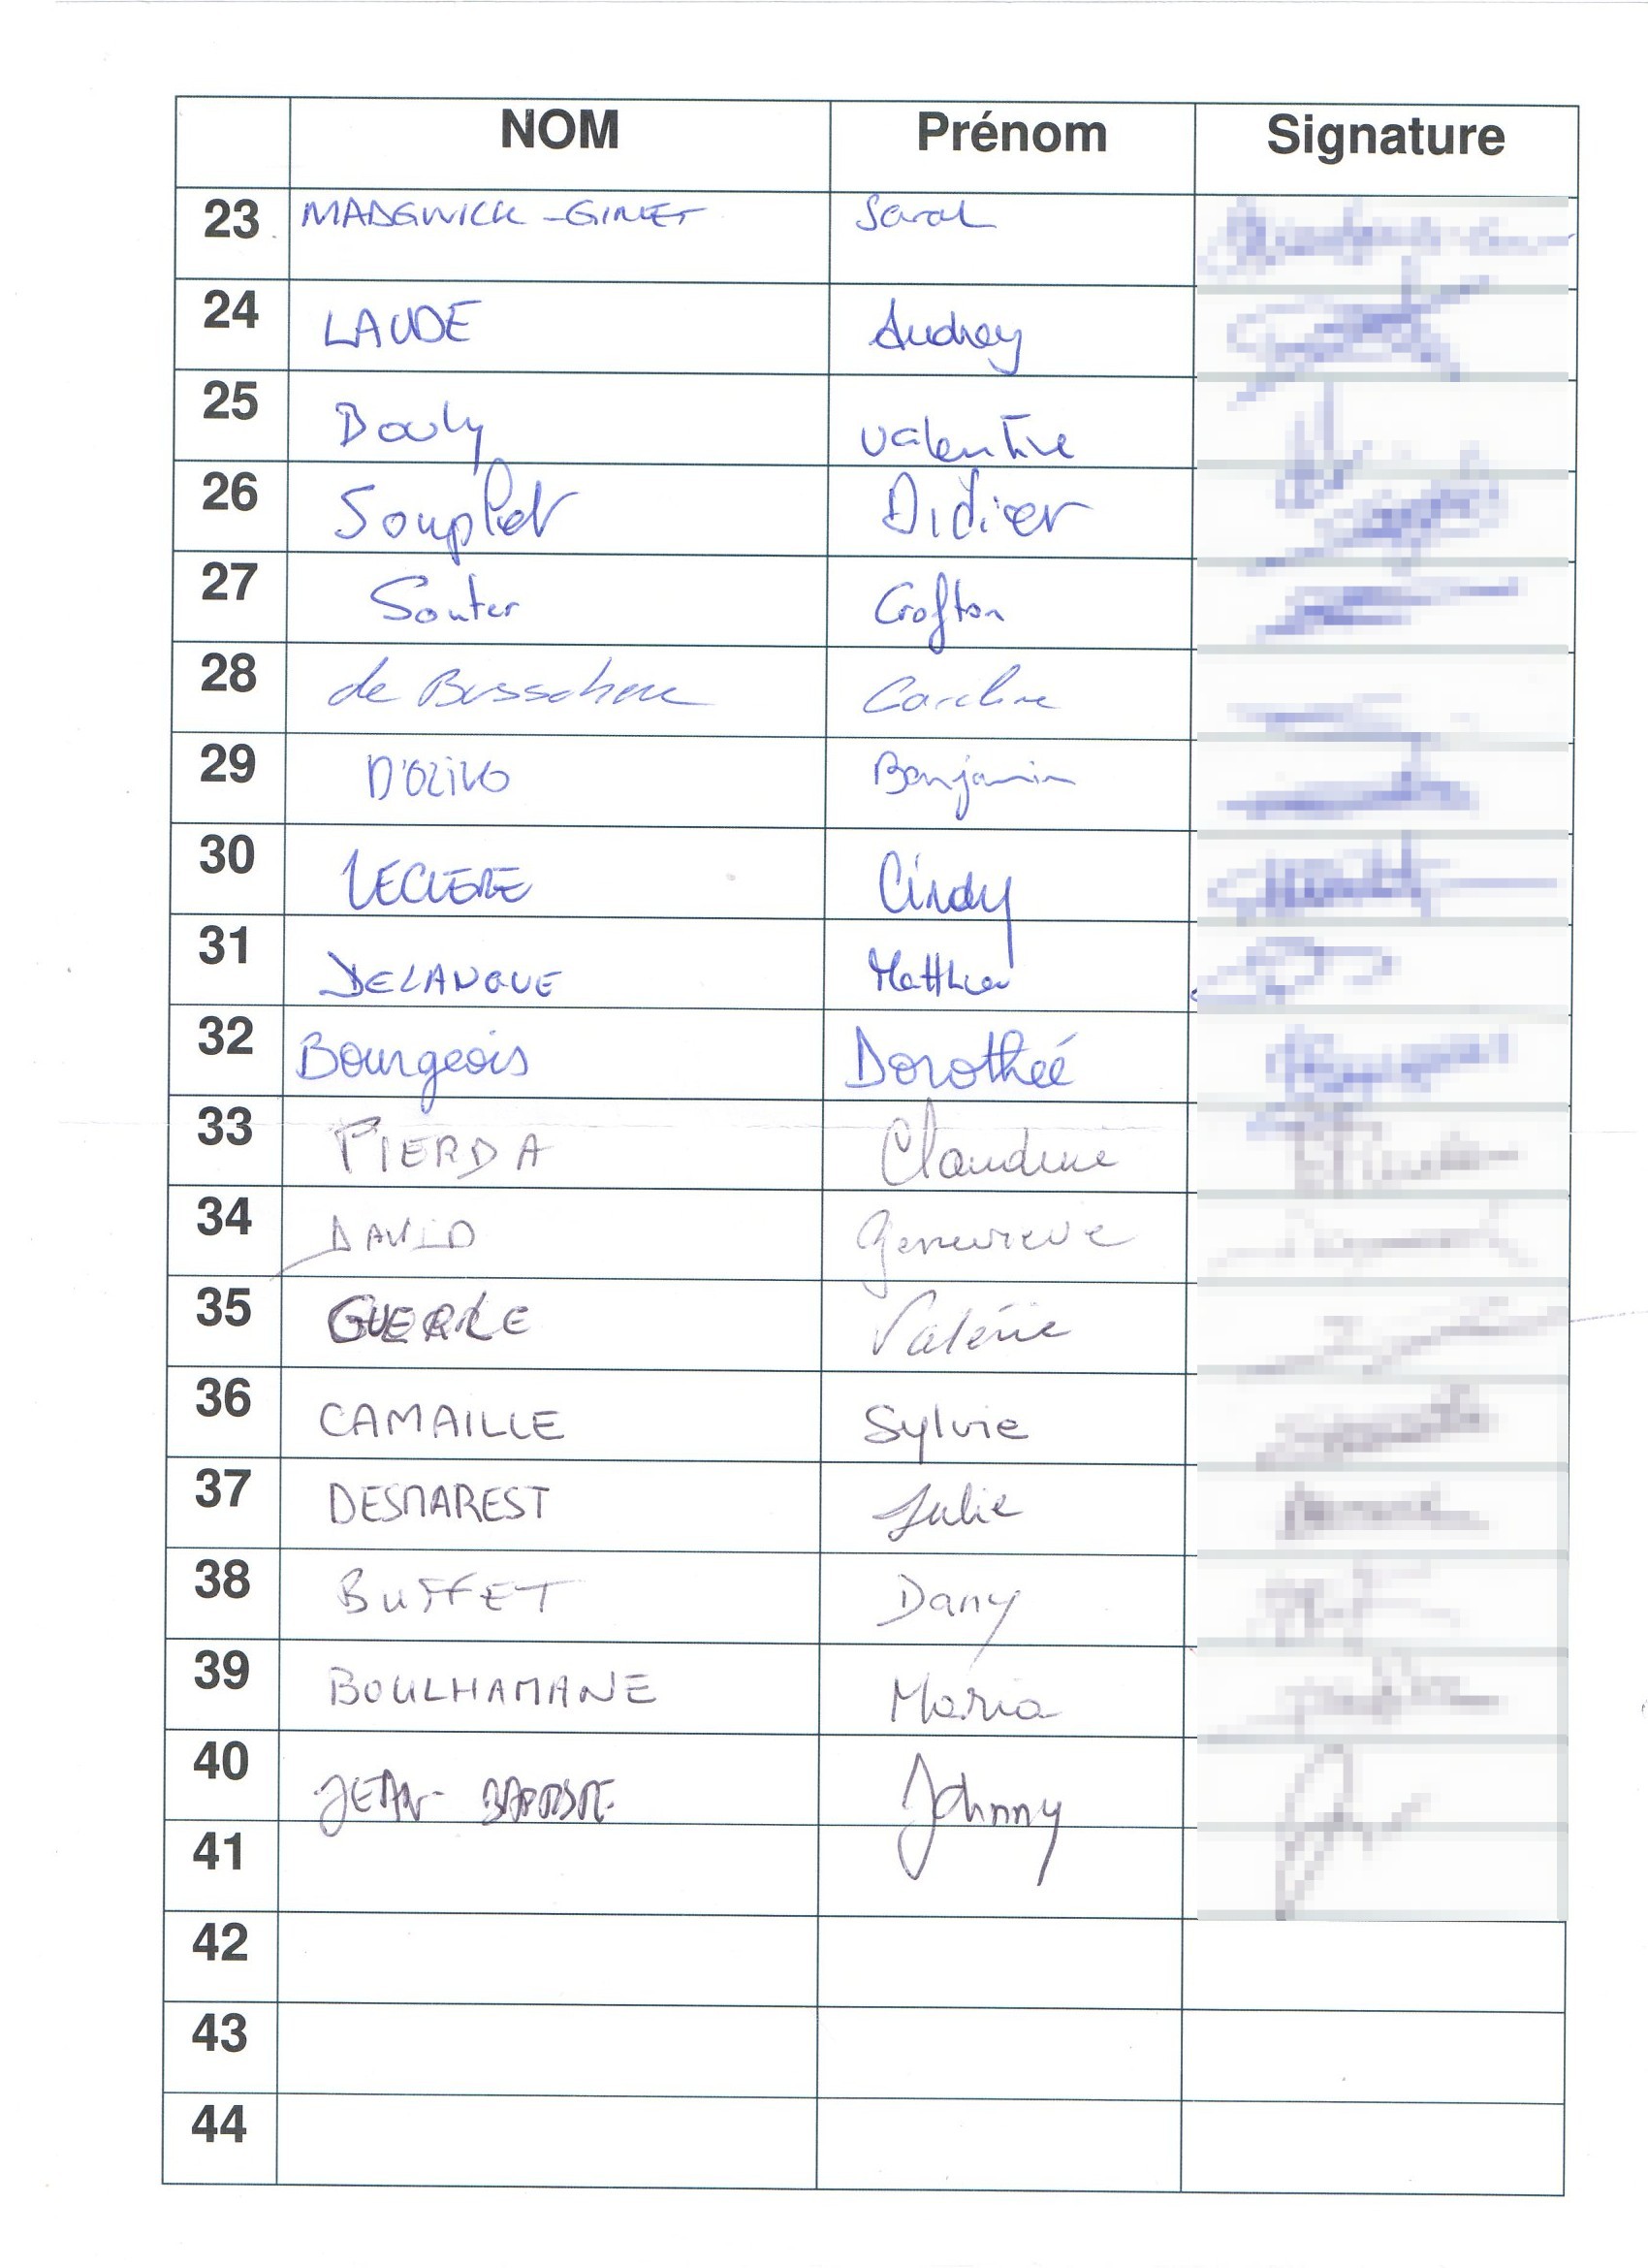 NOM Prénom Signature
23 MADGWICK-GINET Sarah
24 LAUDE Audrey
25 Bouly Valentine
26 Souplet Didier
27 Souter Crofton
28 de Busschere Caroline
29 D'OLIVO Benjamin
30 LECLERE Cindy
31 DELANOUE Matthieu
32 Bourgeois Dorotheé
33 PIERDA Claudine
34 DAVID Genevieve
35 GUERLE Valérie
36 CAMAILLE Sylvie
37 DESMAREST Julie
38 BUFFET Dany
39 BOULHAMANE Maria
40 JEAN-BAPTISTE Johnny
41
42
43
44